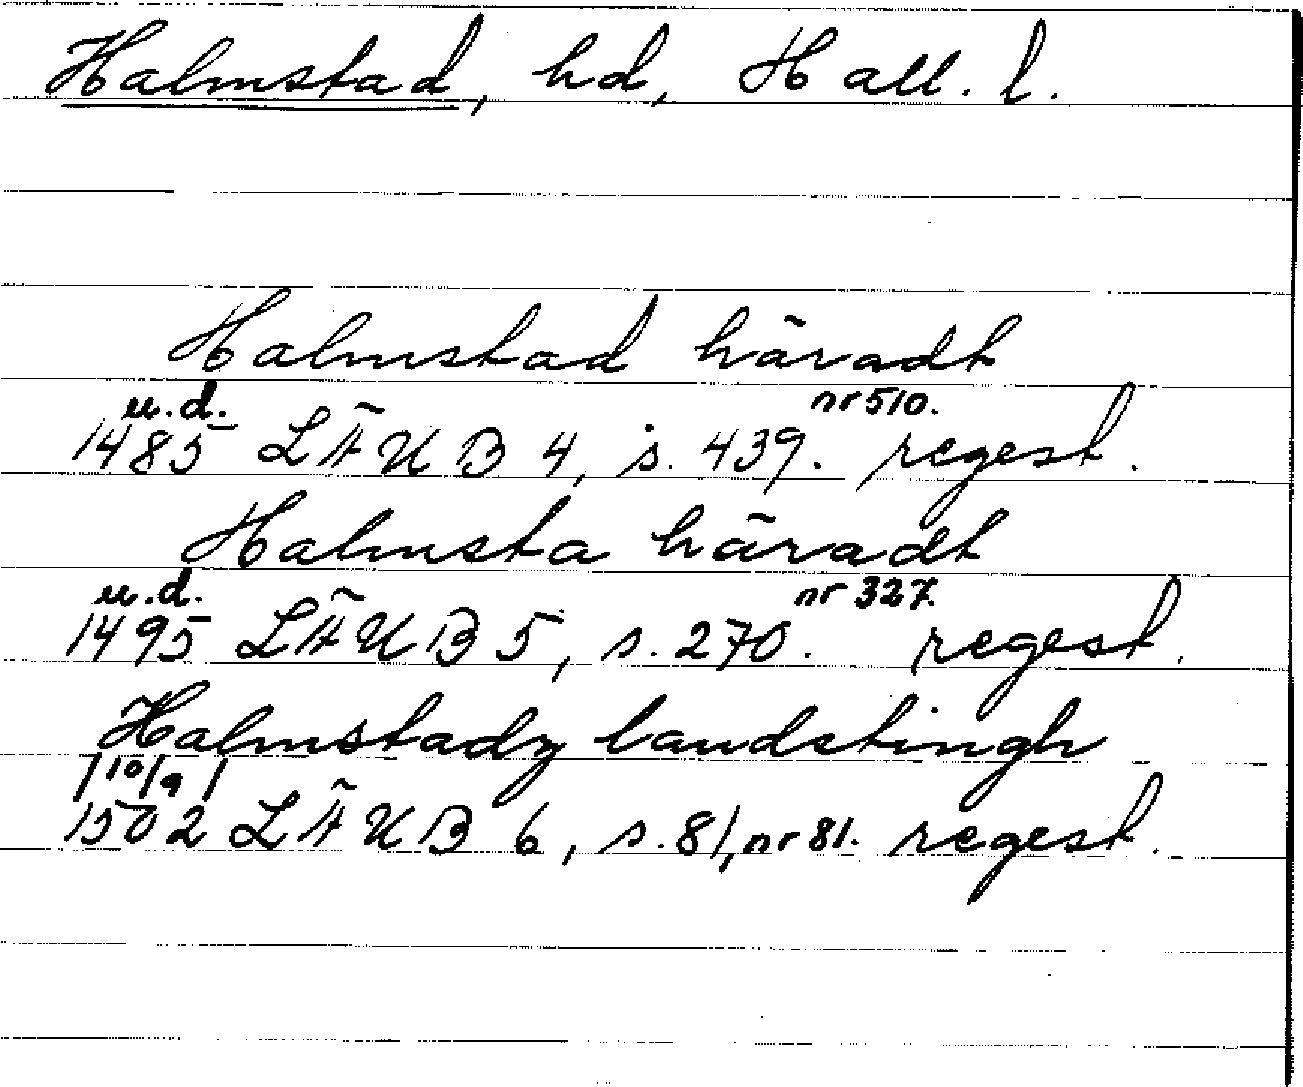 Halmstad, hd, Hall. l.
Halmstad häradt
u.d. nr 510.
1485 LÄUB 4, s. 439. regest.
Halmsta häradt
u.d. nr 327.
1495 LÄUB 5, s. 270. regest.
Halmstadz landstingh
/10/9/
1502 LÄUB 6, s. 81, nr 81. regest.